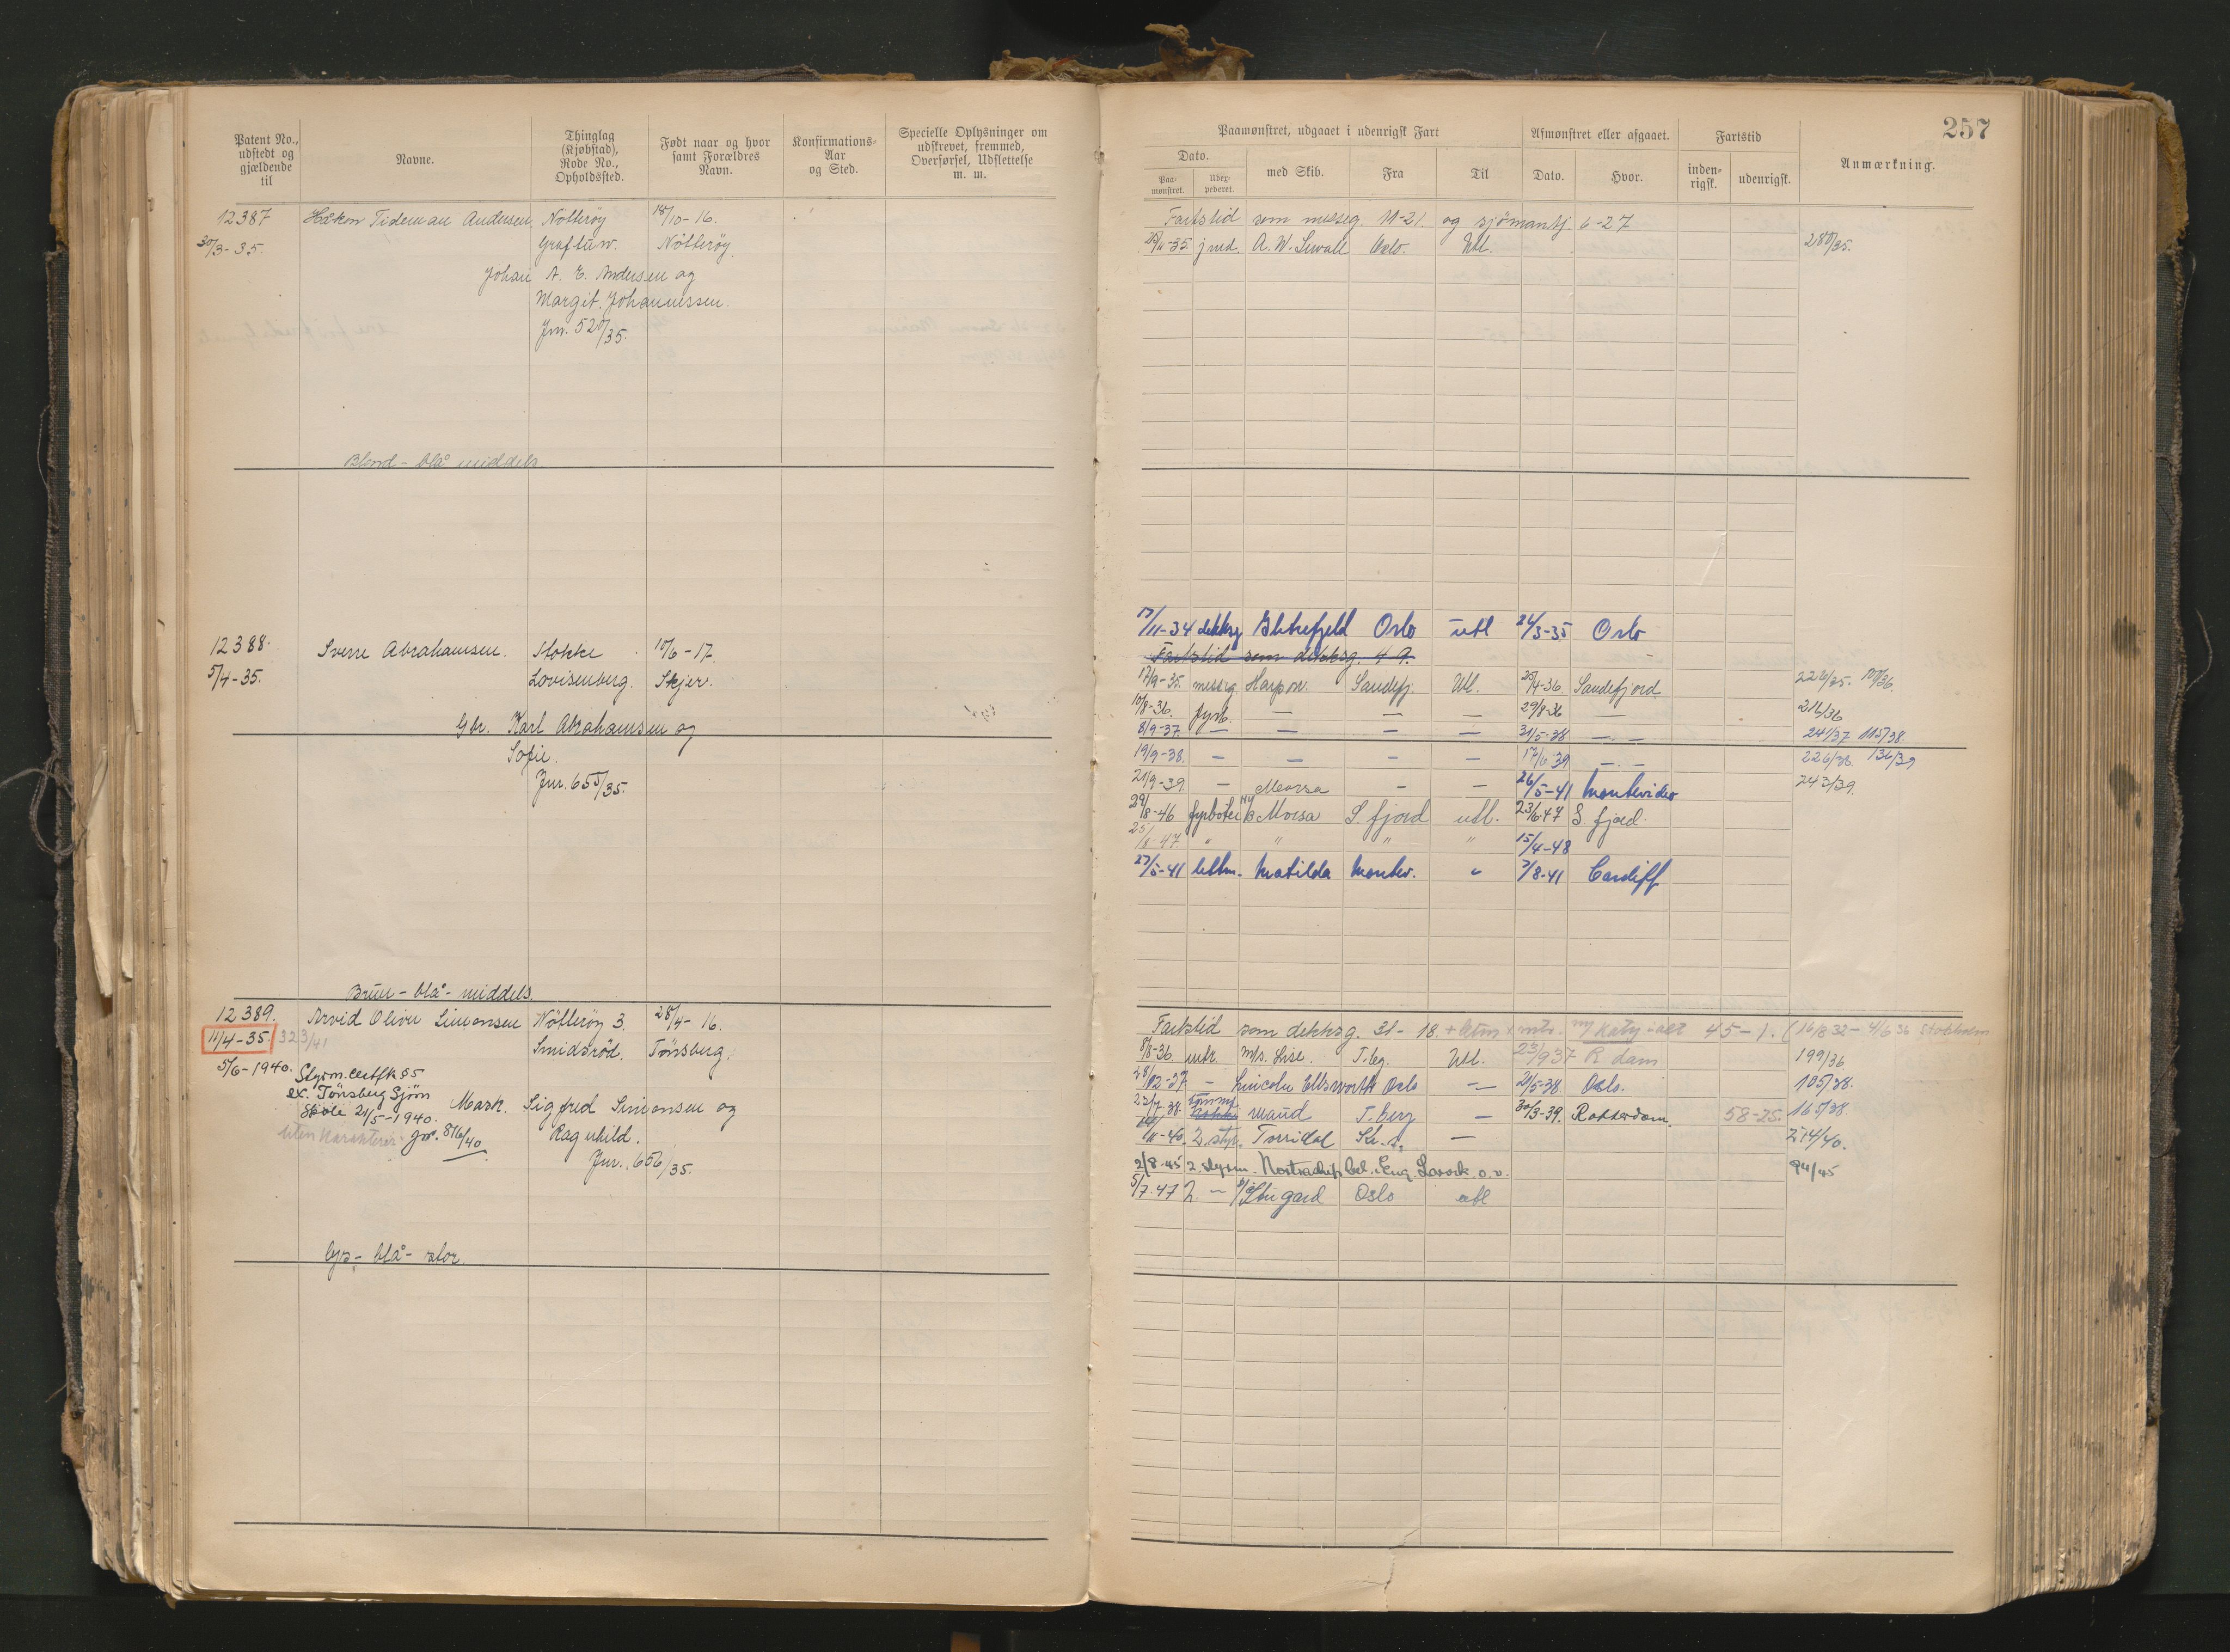 Patent No., udstedt og gjældende til
Navne.
Thinglag (Kjøbstad), Rode No., Opholdssted.
Født naar og hvor samt Forældres Navn.
Konfirmations-Aar og Sted.
Specielle Oplysninger om udskrevet, fremmed, Overførsel, Udslettelse m. m.
12387 Håkon Tideman Andersen Nøtterøy 15/10-16.
30/3-35. Nötteröy.
Johan A. E. Andersen og
Margit Johannessen.
Jnr. 520/35.
Blond - blå middels
12388. Sverre Abrahamsen. Stokke 10/6-17.
5/4-35. Lovisenberg. Skjer.
Gbr. Karl Abrahamsen og
Sofie.
Jnr. 655/35.
Brun - blå - middels.
12389. Arvid Oliver Simonsen Nötteröy 3. 28/4-16.
11/4-35. 323/41 Smidsröd. Tönsberg.
5/6-1940. Styrm.certfk §5
ex. Tönsberg Sjöm
Skole 21/5-1940. Mask. Sigfred Simonsen og
uten karakterer Jnr. 816/40 Ragnhild.
Jnr. 656/35.
lys - blå - stor.
257
Paamønstret, udgaaet i udenrigsk Fart
Afmønstret eller afgaaet.
Fartstid
Anmærkning.
Dato.
Paa-mønstret.
Udex-pederet.
med Skib.
Fra
Til
Dato.
Hvor.
inden-rigsk.
udenrigsk.
Fartstid som messeg. 11-21. og sjömantj. 6-27
jmd. A. W. Sewall Oslo. Utl. 280/35.
17/11-34 dekksg Oslo utl 24/3-35 Oslo
Fartstid som dekksg. 4-9.
17/9-35. messeg Harpon. Sandefj. Utl. 25/4-36. Sandefjord
10/8-36. fyrb. — — — 29/8-36 — 216/36
8/9-37. — — — — 31/5-38 — 241/37 115/38.
19/9-38. — — — — 17/6 39 — 226/38 136/39
21/9-39. — Morsa — — 26/5-41 Montevideo 243/39.
29/8-46 fyrböter M/ Morsa S. fjord utl. 23/6 47 S. fjord.
" " " " 15/4-48
27/5-41 lettm. Matilda Montev. " 7/8-41 Cardiff
Fartstid som dekksg. 31-18. Katy 45-1. (16/8 32 - 4/6 36 Stockholm
8/8-36 mtr. M/s. Lise. T.bg. Utl. 23/9 37 R dam 199/36
28/12-37 — Lincoln Ellsworth Oslo — 21/5-38. Oslo. 105/38.
23/7-38. Maud T. berg — 30/3-39. Rotterdam. 58-25. 165/38.
2. styr. Torridal Kr. s. — 214/40.
2/8-45 2. styrm. Nortraship 94/45
5/7-47 2. — Oslo utl